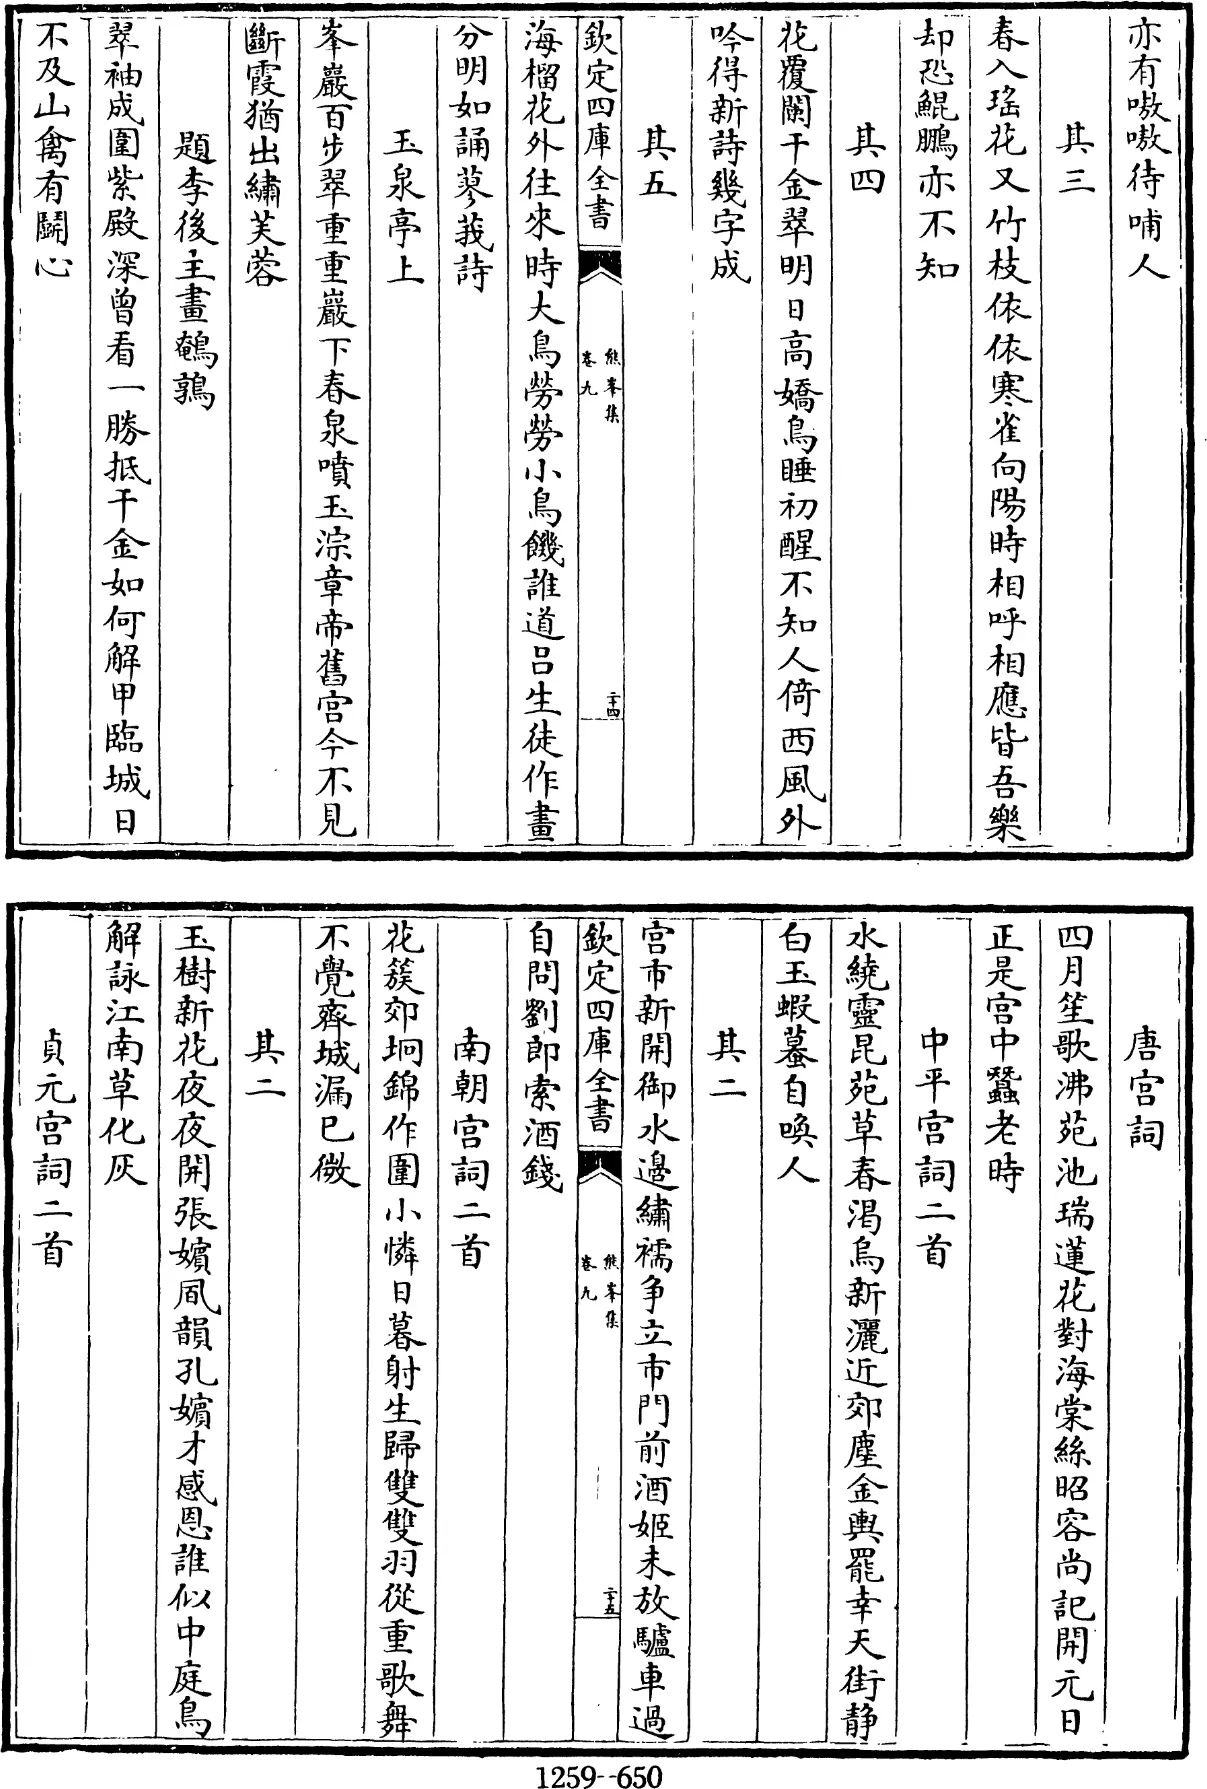 亦有嗷嗷待哺人
其三
春入瑤花又竹枝依依寒雀向陽時相呼相應皆吾樂
却恐鯤鵬亦不知
其四
花覆闌干金翠明日高嬌鳥睡初醒不知人倚西風外
吟得新詩幾字成
其五
欽定四庫全書
熊峯集
卷九
二十四
海榴花外往來時大鳥勞勞小鳥饑誰道呂生徒作畫
分明如誦蓼莪詩
玉泉亭上
峯巖百步翠重重巖下春泉噴玉淙章帝舊宮今不見
斷霞猶出繡芙蓉
題李後主畫鵪鶉
翠袖成圍紫殿深曾看一勝抵千金如何解甲臨城日
不及山禽有鬭心
唐宮詞
四月笙歌沸苑池瑞蓮花對海棠絲昭容尚記開元日
正是宮中蠶老時
中平宮詞二首
水繞靈昆苑草春渴烏新灑近郊塵金輿罷幸天街靜
白玉蝦蟇自喚人
其二
宮市新開御水邊繡襦爭立市門前酒姬未放驢車過
欽定四庫全書
熊峯集
卷九
二十五
自問劉郎索酒錢
南朝宮詞二首
花簇郊坰錦作圍小憐日暮射生歸雙雙羽從重歌舞
不覺齊城漏已微
其二
玉樹新花夜夜開張嬪風韻孔嬪才感恩誰似中庭鳥
解詠江南草化灰
貞元宮詞二首
1259--650